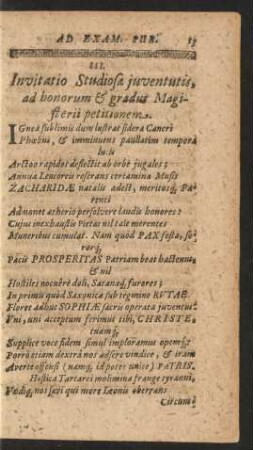 AD EXAM. PUB. 13
III.
Invitatio Studiosæ juventutis,
ad honorum & gradus Magi-
sterii petitionem.
IGnea sublimis dum lustrat sidera Cancri
Phœbus, & imminuens paullatim tempora
lucis
Arctoo rapidos deflectit ab orbe jugales;
Annua Leucoreis reserans certamina Musis
ZACHARIDÆ natalis adest, meritosq; Pa-
renti
Admonet ætherio persolvere laudis honores:
Cujus inexhaustis Pietas nil tale merentes
Muneribus cumulat. Nam quòd PAX festa, so-
rorq;
Pacis PROSPERITAS Patriam beat hactenus,
& nil
Hostiles nocuêre doli, Satanæq; furores;
In primis quòd Saxonicæ sub tegmine RVTAE
Floret adhuc SOPHIÆ sacris operata juventus:
Vni, uni acceptum ferimus tibi, CHRISTE,
tuamq;
Supplice voce fidem simul imploramus opemq;:
Porrò etiam dextrâ nos assere vindice, & iram
Averte offensi (namq; id potes unice) PATRIS.
Hostica Tartarei molimina frange tyranni,
Vocliq; nos sævi qui more Leonis oberrans
Circum